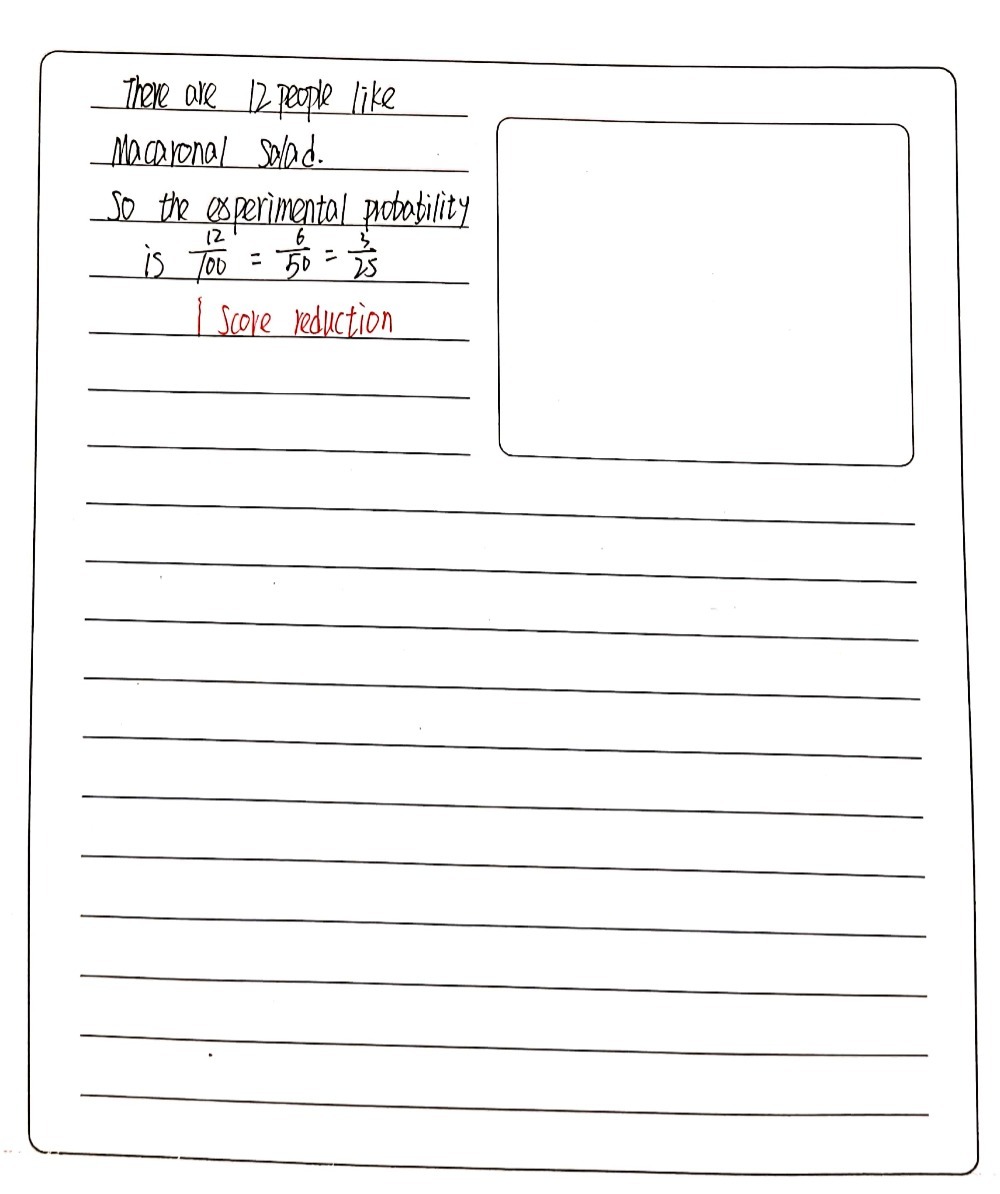 There are 12 people like
Macaronal Salad.
So the experimental probability
is 12/100 = 6/50 = 3/25
1 Score reduction